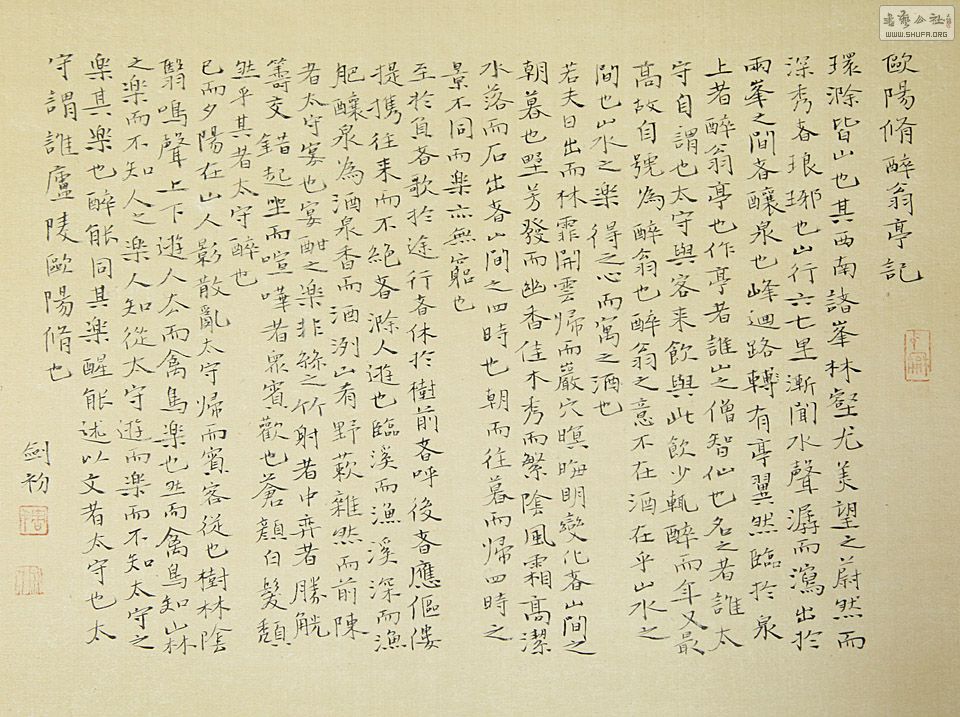 歐陽脩醉翁亭記
環滁皆山也其西南諸峯林壑尤美望之蔚然而
深秀者琅琊也山行六七里漸聞水聲潺而瀉出於
兩峯之間者釀泉也峰迴路轉有亭翼然臨於泉
上者醉翁亭也作亭者誰山之僧智仙也名之者誰太
守自謂也太守與客來飲與此飲少輒醉而年又最
高故自號為醉翁也醉翁之意不在酒在乎山水之
間也山水之樂得之心而寓之酒也
若夫日出而林霏開雲歸而巖穴暝晦明變化者山間之
朝暮也野芳發而幽香佳木秀而繁陰風霜高潔
水落而石出者山間之四時也朝而往暮而歸四時之
景不同而楽亦無窮也
至於負者歌於途行者休於樹前者呼後者應傴僂
提攜往来而不絕者滁人遊也臨溪而漁溪深而漁
肥釀泉為酒泉香而酒洌山肴野蔌雜然而前陳
者太守宴也宴酣之楽非絲之竹射者中弈者勝觥
籌交錯起坐而喧嘩者眾賓歡也蒼顏白髮頹
然乎其者太守醉也
已而夕陽在山人影散亂太守歸而賓客從也樹林陰
翳鳴聲上下遊人去而禽鳥楽也然而禽鳥知山林
之楽而不知人之楽人知從太守遊而楽而不知太守之
楽其楽也醉能同其楽醒能述以文者太守也太
守謂誰廬陵歐陽脩也
劍初
書藝公社
WWW.SHUFA.ORG